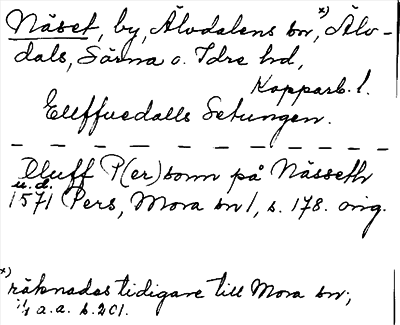 Näset, by, Älvdalens sn,*) Älv-
dals, Särna o. Idre hd,
Kopparb. l.
Elffuedalls Setungen.
Oluff P(er)sonn på Nässeth
u.d.
1571 Pers, Mora sn 1, s. 178. orig.
*) räknades tidigare till Mora sn;
a.a. s. 201.